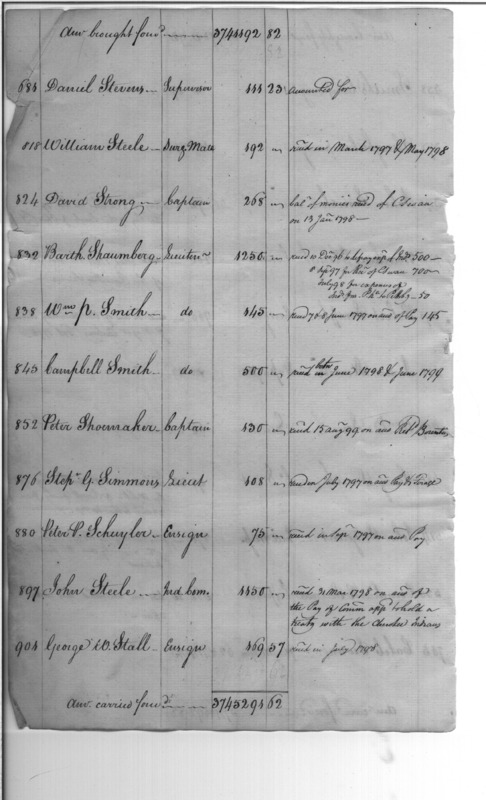 Amt. brought forwd. 3741192 82
684 Daniel Stevens Supervisor 444 23 accounted for
818 William Steele Surg. Mate 192 " recd in March 1797 & May 1798
824 David Strong Captain 268 " bale of monies recd of
on 13 Jany 1798
832 Barth Shaumberg Lieuten 1250 " 500
700
50
838 Wm. P. Smith do 145 " June 1797 on acct of Pay 145
845 Campbell Smith do 500 " recd in both June 1798 & June 1799
852 Peter Shoemaker Captain 130 " recd 15 Aug 99 on acct
876 Stepn. G. Simmons Lieut 108 " July 1797 on acct Pay & Forage
880 Peter P. Schuyler Ensign 75 " recd in Sepr 1797 on acct Pay
897 John Steele Ind. Com. 1450 " recd 31 Mar. 1798 on acct of
the Pay of Commr appd to hold a
treaty with the Indians
904 George W. Stall Ensign 169 57 recd in July
Amt. carried forwd. 3745294 62